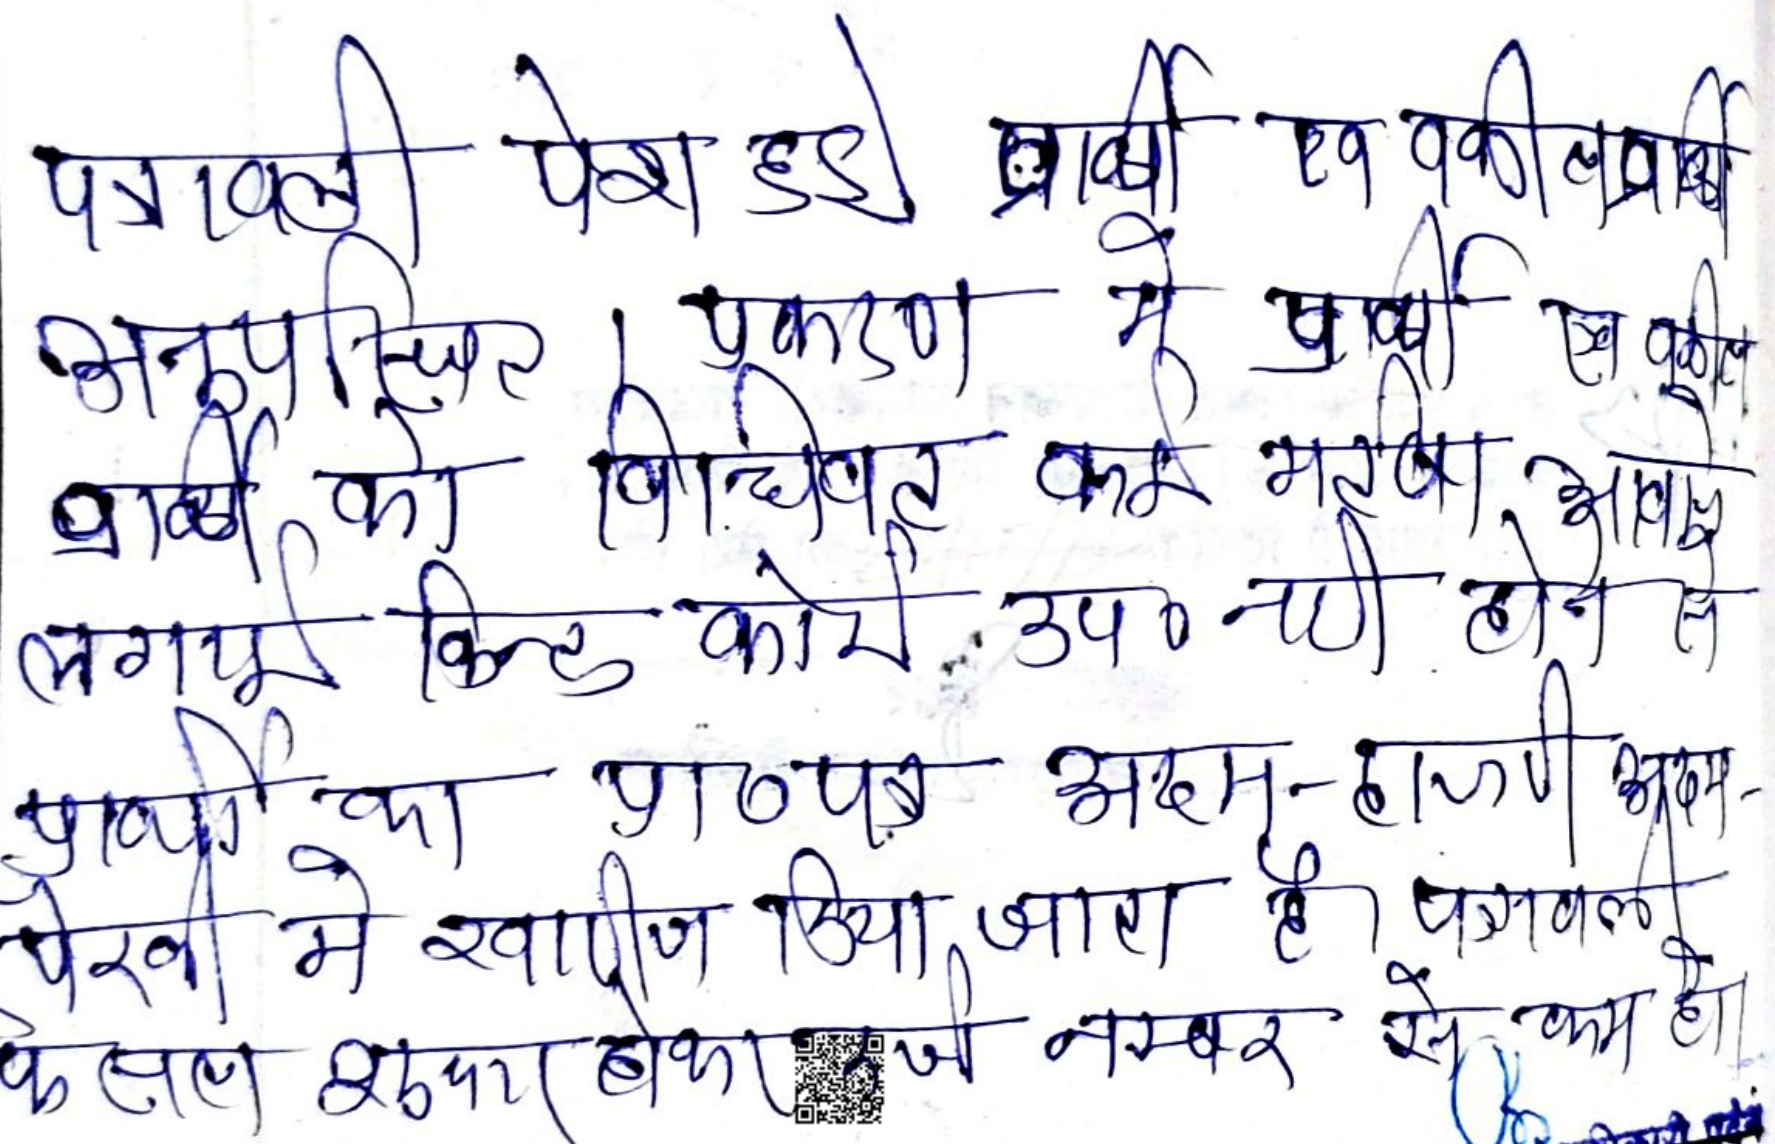 पत्रावली पेश हुई। प्रार्थी एवं वकील प्रार्थी
अनुपस्थित । प्रकरण में प्रार्थी एवं वकील
प्रार्थी को विधिवत कई मर्तबा आवाजे
लगाई किन्तु कोई उप० नहीं होने से
प्रार्थी का प्रा०पत्र अदम-हाजरी अदम-
पैरवी में खारीज किया जाता है। पत्रावली
फैसला शुमार होकर दर्ज नम्बर से कम हो।